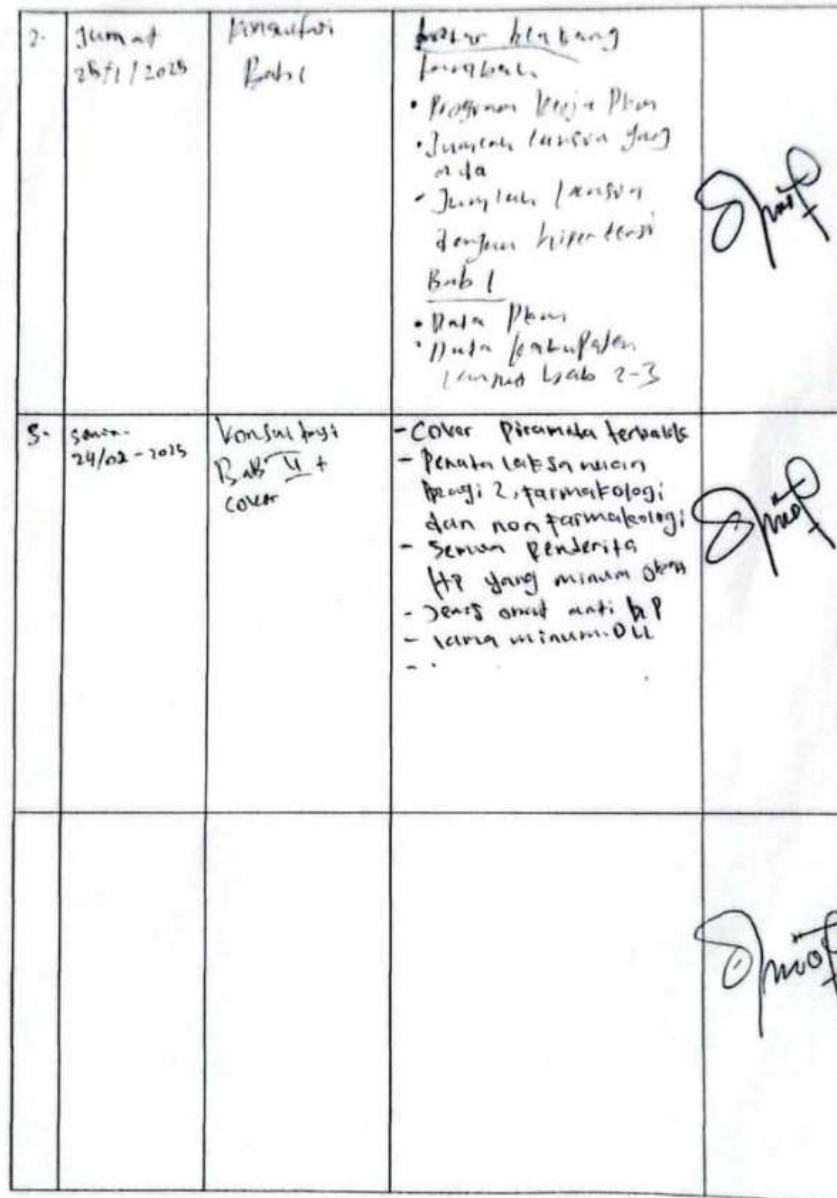 2.
Jumat
25/1/2025
Konsultasi
Bab 1
latar blakang
tambah
• Program kerja Pkm
• Jumlah lansia yang
ada
- Jumlah lansia
dengan hipentensi
Bab 1
• Data Pkm
• Data kabupaten
lanjut bab 2-3
3-
senin-
24/02-2025
Konsultasi
Bab II +
cover
- Cover piramida terbalik
- Penata laksanaan
bagi 2, farmakologi
dan non farmakologi
- Semua penderita
HP yang minum
- Jenis anti HP
- lama minum. DLL
- .